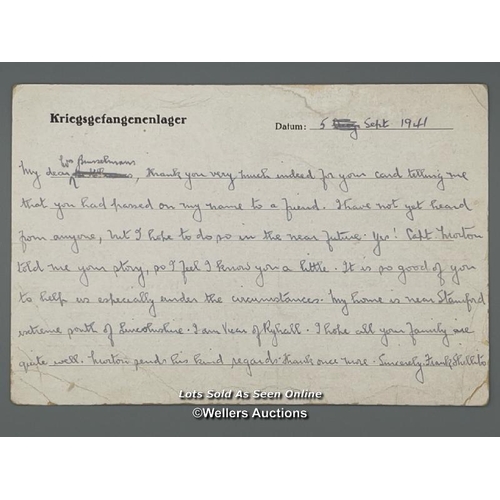 Kriegsgefangenenlager
Datum: 5 Sept 1941
Mrs Bensselmans
My dear, thank you very much indeed for your card telling me
that you had passed on my name to a friend. I have not yet heard
from anyone, but I hope to do so in the near future. Yes! Capt Newton
told me your story, so I feel I know you a little. It is so good of you
to help us especially under the circumstances. My home is near Stamford
extreme south of Lincolnshire. I am Vicar of Ryhall. I hope all your family are
quite well. Newton sends his kind regards. Thank once more. Sincerely, Frank Shillito.
Lots Sold As Seen Online
©Wellers Auctions